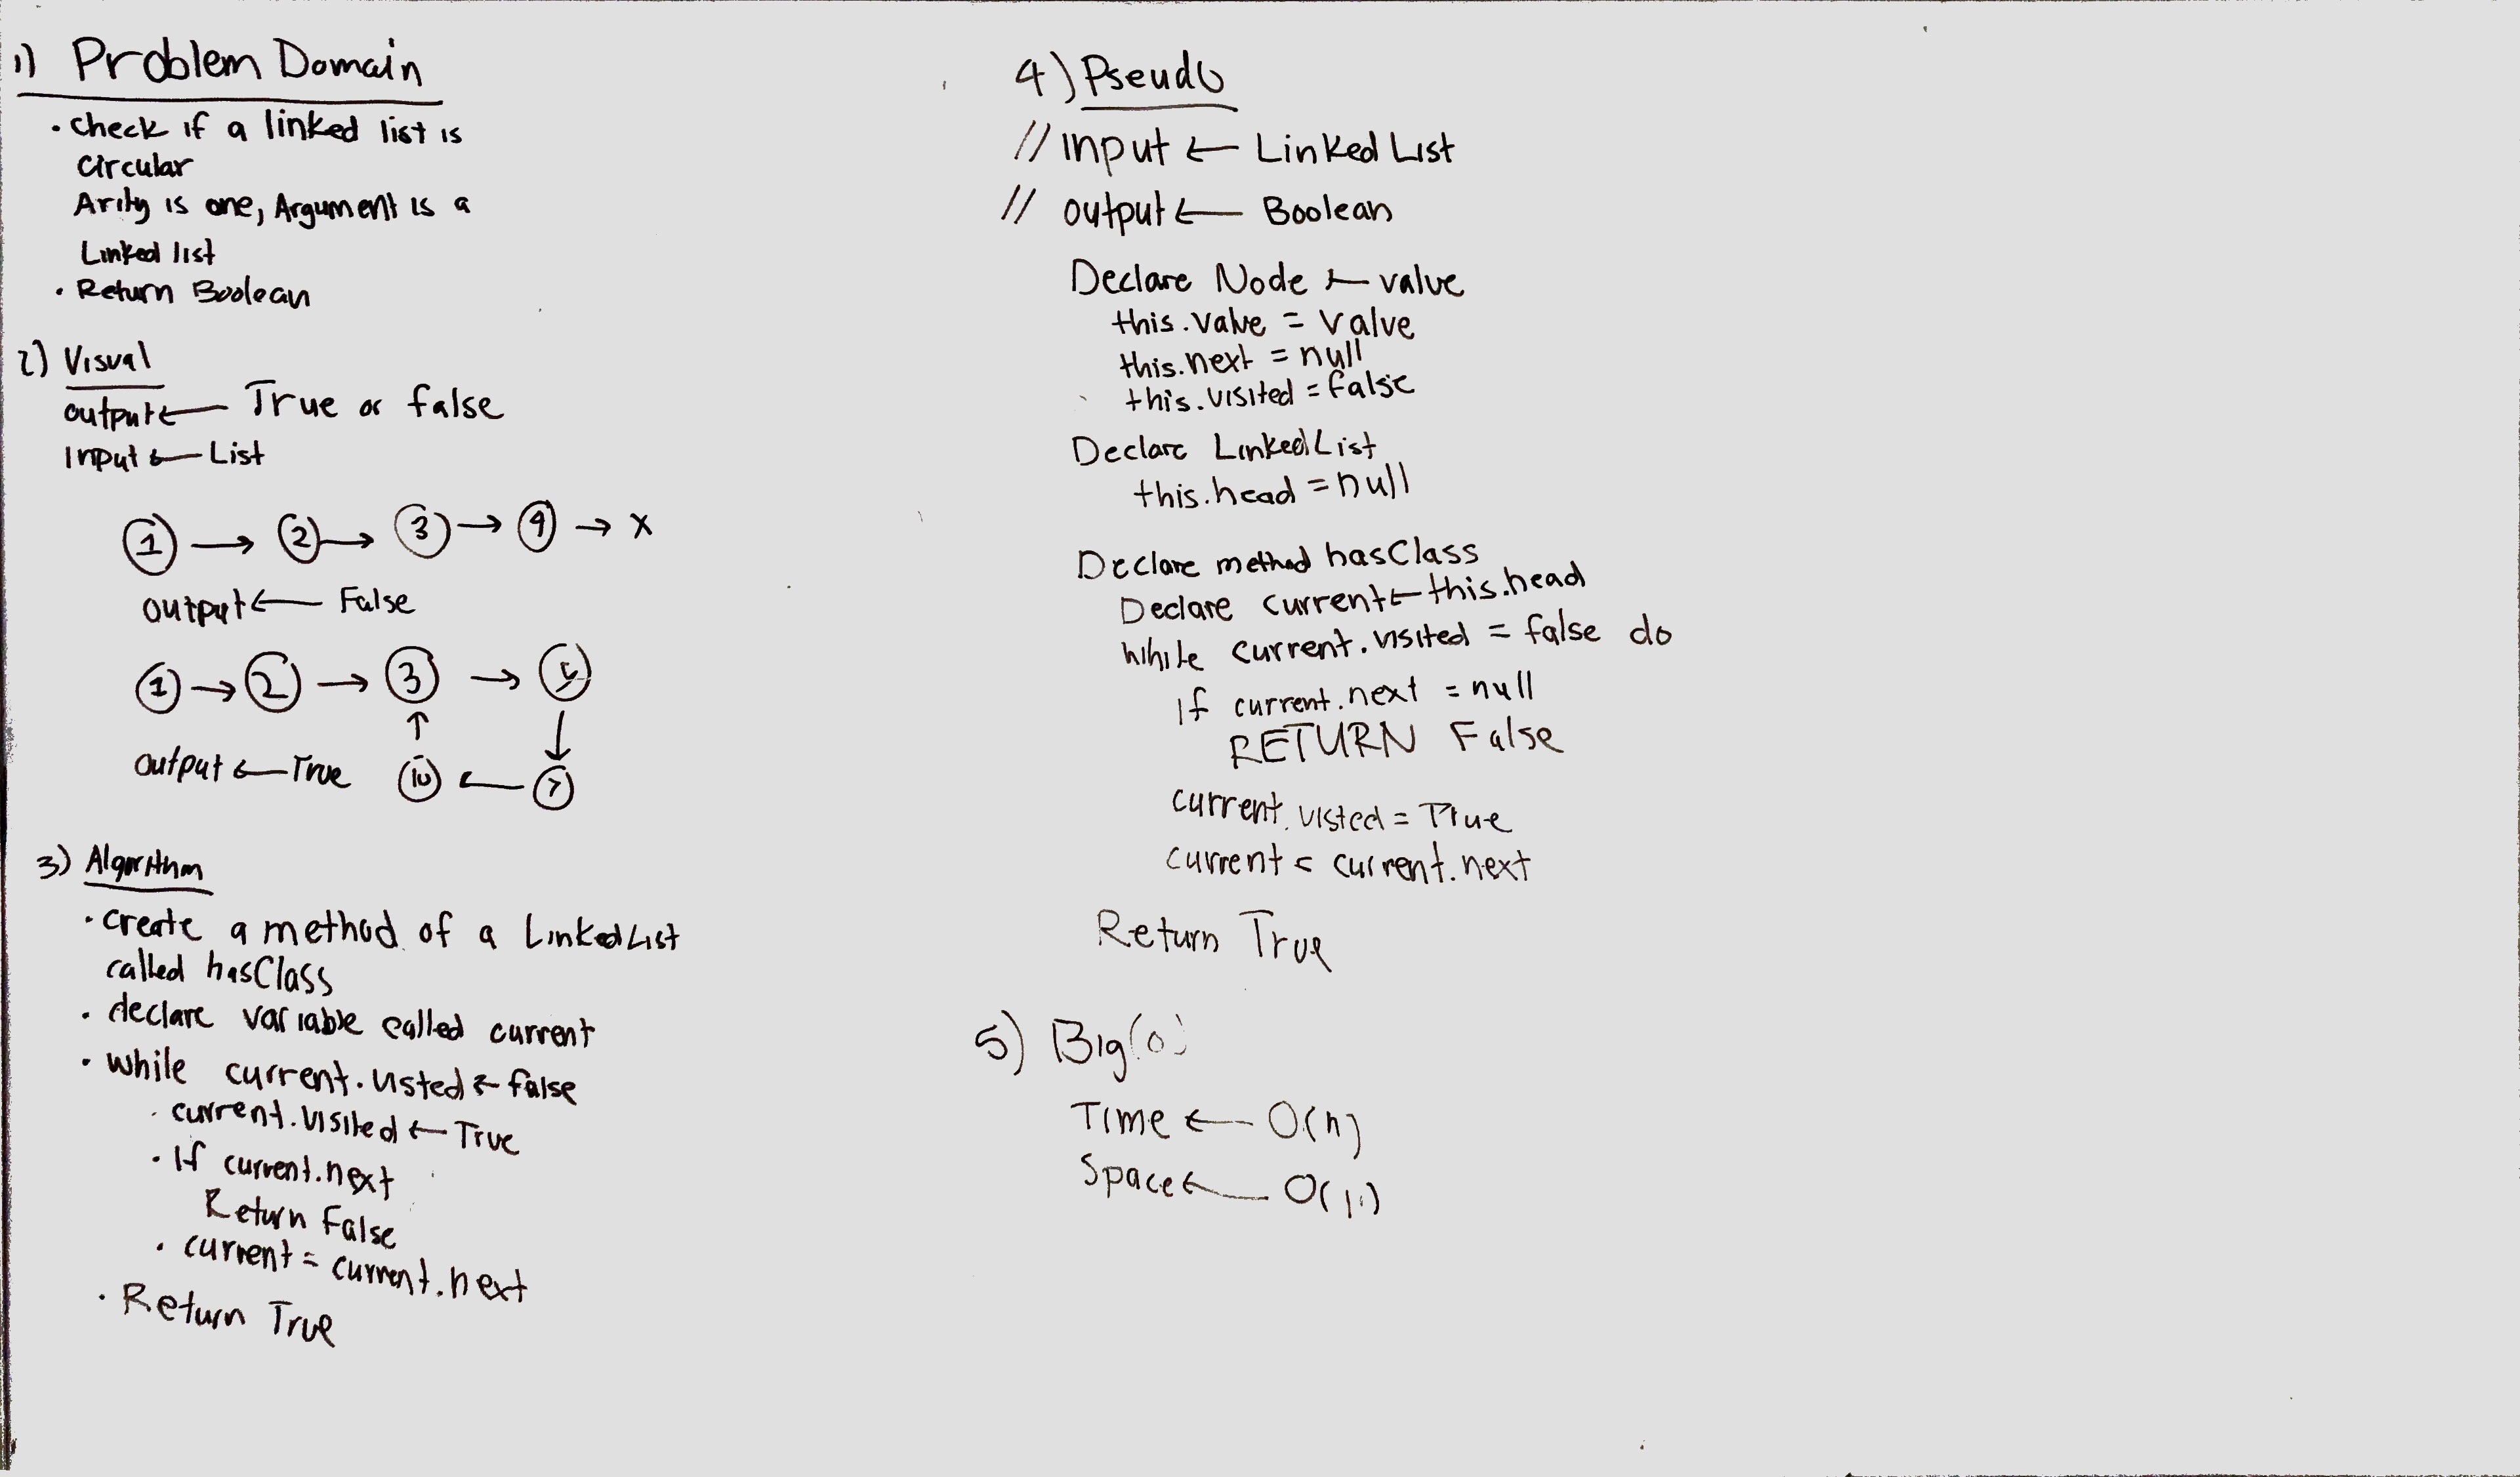 1) Problem Domain
• Check if a linked list is
Circular
Arity is one, Argument is a
Linked list
• Return Boolean
2) Visual
output ← True or false
Input ← List
1 → 2 → 3 → 9 → X
output ← False
1 → 2 → 3 →
↑ ↓
output ← True ←
3) Algorithm
• create a method of a LinkedList
called hasClass
• declare variable called current
• While current.visted ← false
• current.visited ← True
• If current.next
Return False
• current = current.next
• Return True
4) Pseudo
// Input ← Linked List
// output ← Boolean
Declare Node ← value
this.value = value
this.next = null
this.visited = false
Declare LinkedList
this.head = null
Declare method hasClass
Declare current ← this.head
While current.visited = false do
If current.next = null
RETURN False
current.visted = True
current = current.next
Return True
5) Big(o)
Time ← O(n)
Space ← O(1)